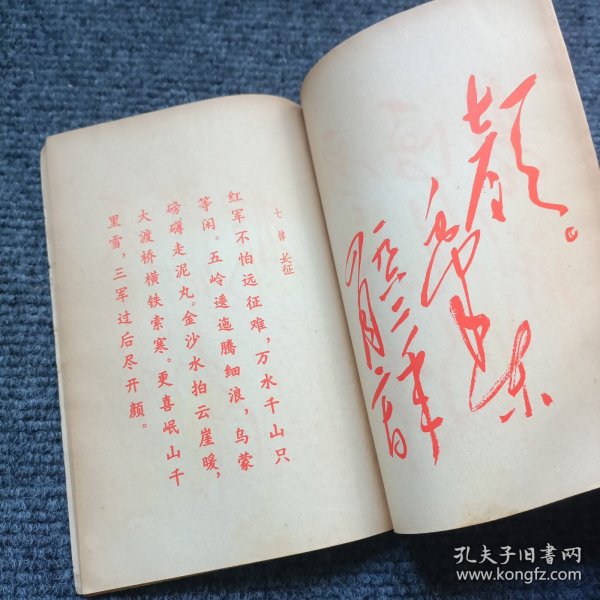 颜。
毛泽东
七律 长征
红军不怕远征难，万水千山只
等闲。五岭逶迤腾细浪，乌蒙
磅礴走泥丸。金沙水拍云崖暖，
大渡桥横铁索寒。更喜岷山千
里雪，三军过后尽开颜。
孔夫子旧书网
www.kongfz.com